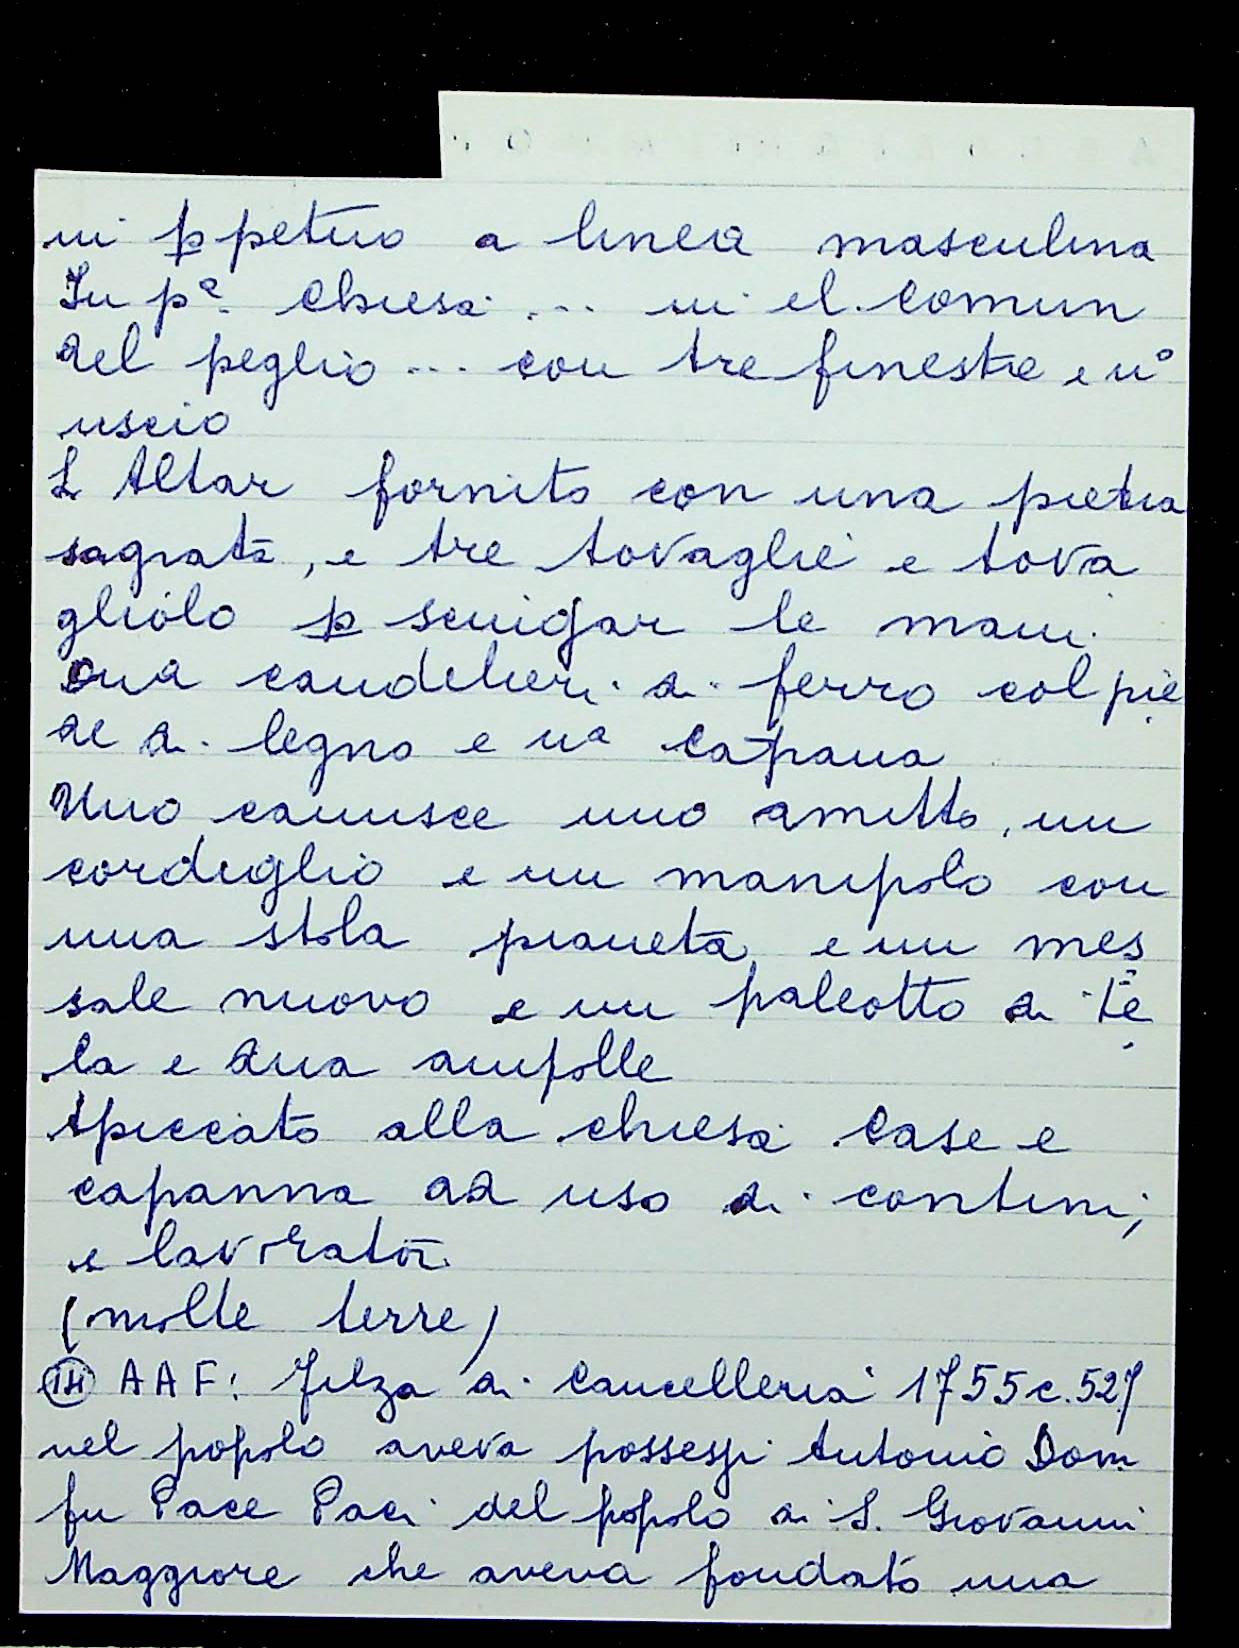 in ppetuo a linea masculina
In pª chiesa ... in el comun
del peglio ... con tre finestre e uº
uscio
L Altar fornito con una pietra
sagrata, e tre tovaglie e tova
gliolo p sciugar le mani
Dua candelieri di ferro col pie
de di legno e uª cāpana
Uno camisce uno amitto, un
cordiglio e un manipolo con
una stola pianeta e un mes
sale nuovo e un paleotto di te
la e dua ampolle
Apiccato alla chiesa case e
capanna ad uso di contini,
e lavoratori
(molte terre)
AAF: Filza di Cancelleria 1755 c. 527
nel popolo aveva possessi Antonio Dom
fu Pace Paci del popolo di S. Giovanni
Maggiore che aveva fondato una